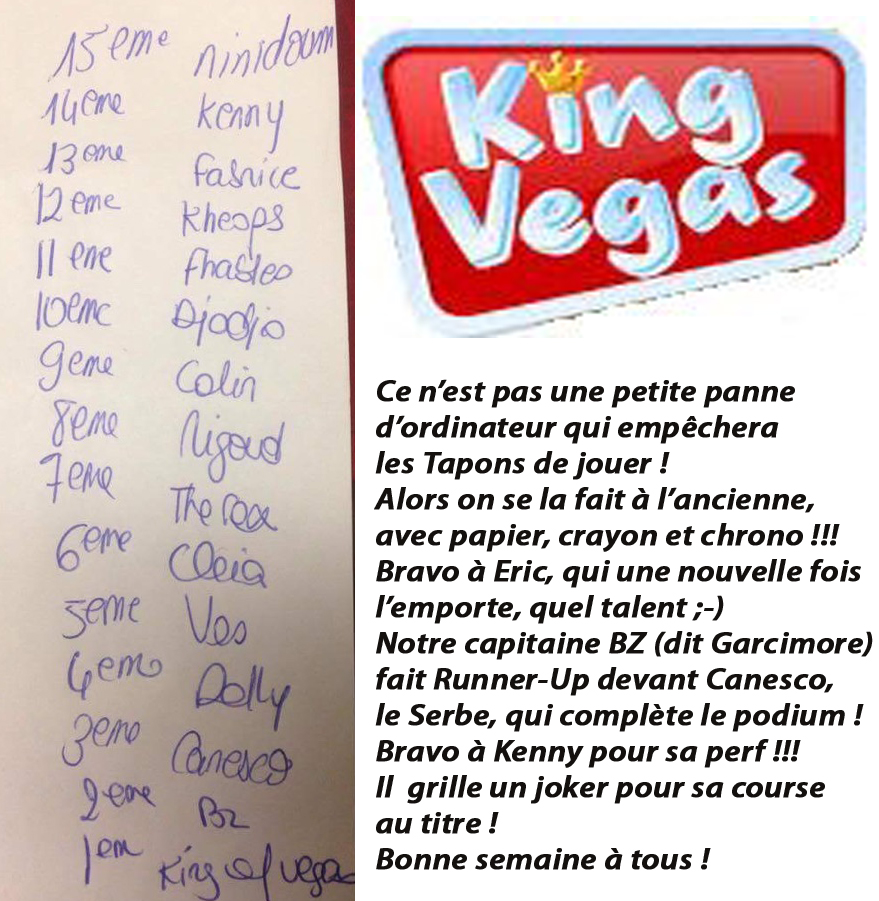 15eme ninidoum
14eme Kenny
13eme Fabrice
12eme Kheops
11eme
10eme Djodjo
9eme Colin
8eme Rigoud
7eme The rock
6eme Cleia
5eme Ves
4eme Dolly
3eme Canesco
2eme Bz
1em King of vegas
King
Vegas
Ce n'est pas une petite panne
d'ordinateur qui empêchera
les Tapons de jouer !
Alors on se la fait à l'ancienne,
avec papier, crayon et chrono !!!
Bravo à Eric, qui une nouvelle fois
l'emporte, quel talent ;-)
Notre capitaine BZ (dit Garcimore)
fait Runner-Up devant Canesco,
le Serbe, qui complète le podium !
Bravo à Kenny pour sa perf !!!
Il grille un joker pour sa course
au titre !
Bonne semaine à tous !